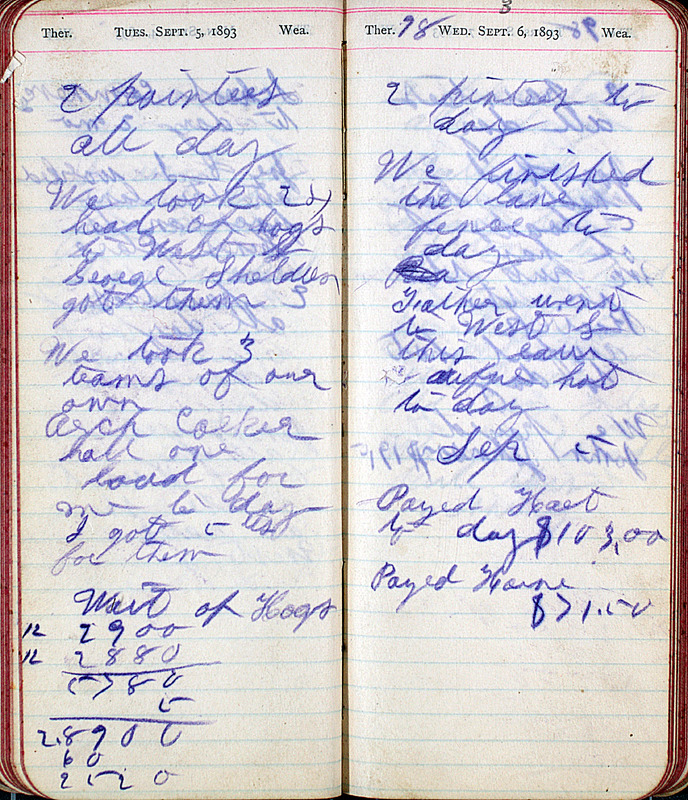 Ther. TUES. SEPT. 5, 1893 Wea.
2 painters
all day
We took 25
head of hogs
to West S
George Sheldon
got them
We took 3
teams of our
own
Arch
hall one
load for
me to day
I got 5 cts
for them
Wait of Hogs
12 2900
12 2880
5780
5
2.8900
60
2520
3
Ther. 98 WED. SEPT. 6, 1893 98 Wea.
2 pinters to
day
We finished
the lane
fence to
day
Father went
to West S
this eav
aufue hot
to day
Sep 5
Payed Haet
to day $103,00
Payed Horne
$71.50